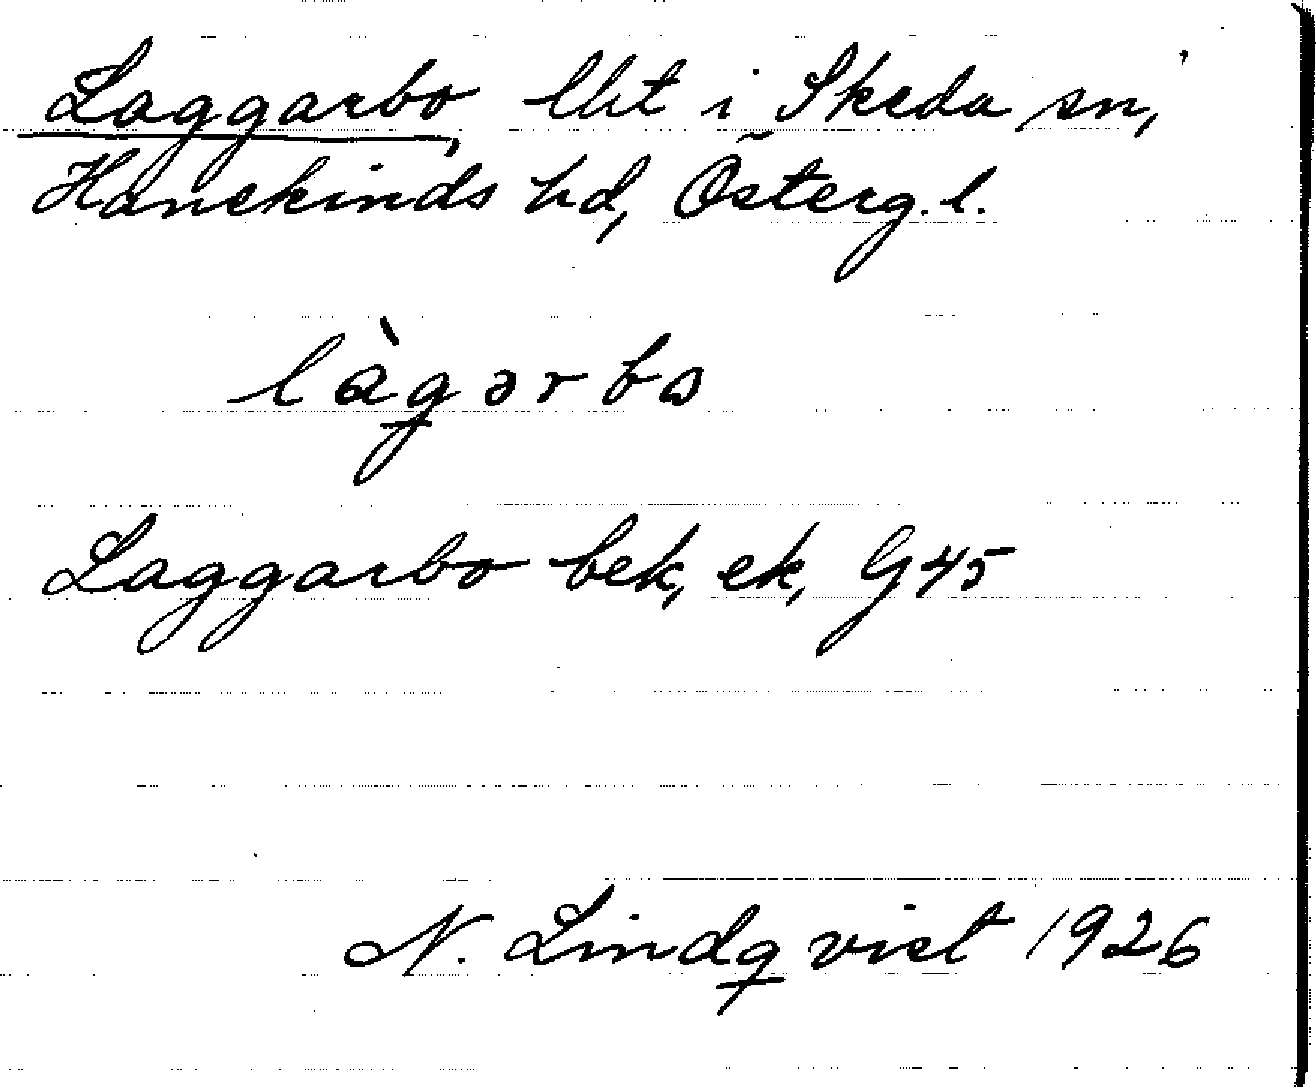 Laggarbo, lht i Skeda sn,
Hanekinds hd, Österg. l.
làgərbo
Laggarbo bek, ek, G45
N. Lindqvist 1926